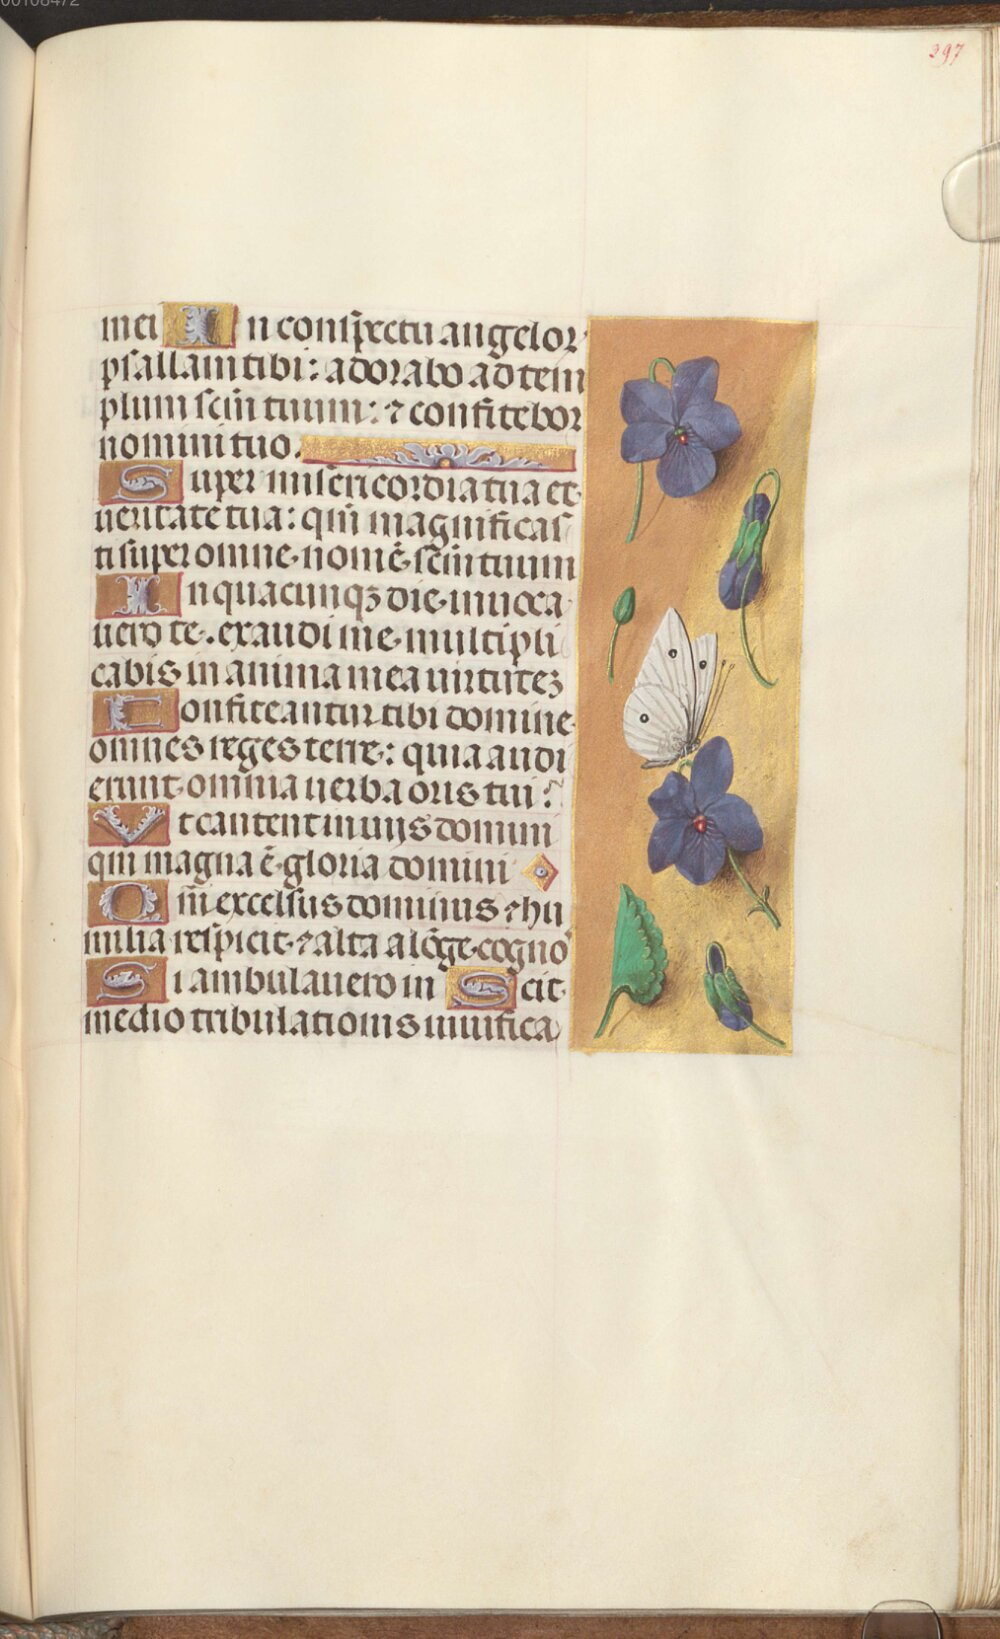 00108472
297
mei In conspectu angelor
psallam tibi: adorabo ad tem
plum scm̄ tuum: ⁊ confitebor
nomini tuo.
Super misericordia tua et
ueritate tua: qm̄ magnificas
ti super omne nomē scm̄ tuum
In quacunqꝫ die inuoca
uero te. exaudi me multipli
cabis in anima mea uirtuteꝫ
Confiteantur tibi domine
omnes reges terre: quia audi
erunt omnia uerba oris tui:
Vt cantent in uijs domini
qm̄ magna ē gloria domini
Qm̄ excelsus dominus ⁊ hu
milia respicit ⁊ alta a lōge cogno
Si ambulauero in Scit
medio tribulationis uiuifica